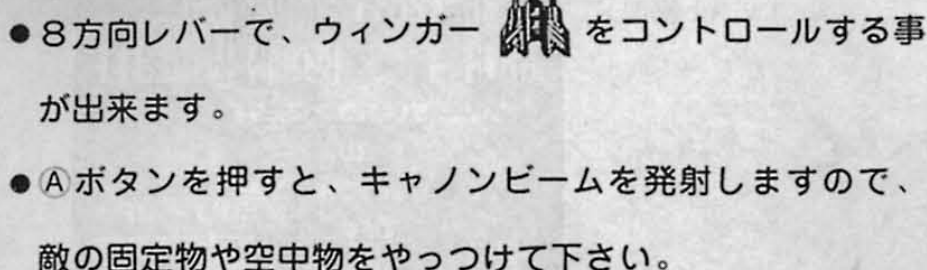 ●８方向レバーで、ウィンガー をコントロールする事
が出来ます。
●Ⓐボタンを押すと、キャノンビームを発射しますので、
敵の固定物や空中物をやっつけて下さい。